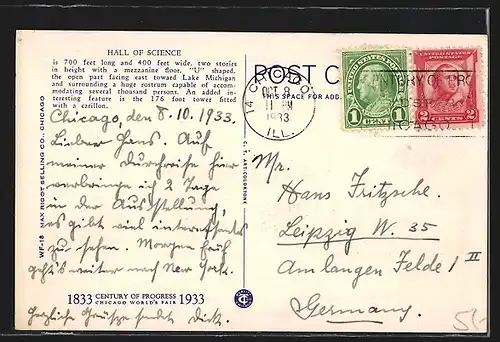 HALL OF SCIENCE
is 700 feet long and 400 feet wide, two stories
in height with a mezzanine floor, "U" shaped,
the open part facing east toward Lake Michigan
and surrounding a huge rostrum capable of accom-
modating several thousand persons. An added in-
teresting feature is the 176 foot tower fitted
with a carillon.
Chicago, den 8.10.1933.
Lieber Hans. Auf
meiner Durchreise hier
verbringe ich 2 Tage
in der Ausstellung,
es gibt viel interessantes
zu sehen. Morgen früh
geht's weiter nach New York.
1833 CENTURY OF PROGRESS 1933
CHICAGO WORLD'S FAIR
Herzliche Grüsse sendet Dick.
WF-18 MAX RIGOT SELLING CO., CHICAGO
C. T. ART-COLORTONE
POST C
THIS SPACE FOR ADD
14 CHICAGO
OCT 8
11 PM
1933
ILL.
1 CENT 1
UNITED STATES POSTAGE
2 CENTS 2
Mr.
Hans Fritzsche.
Leipzig W. 35
Am langen Felde 1 II
Germany.
CT